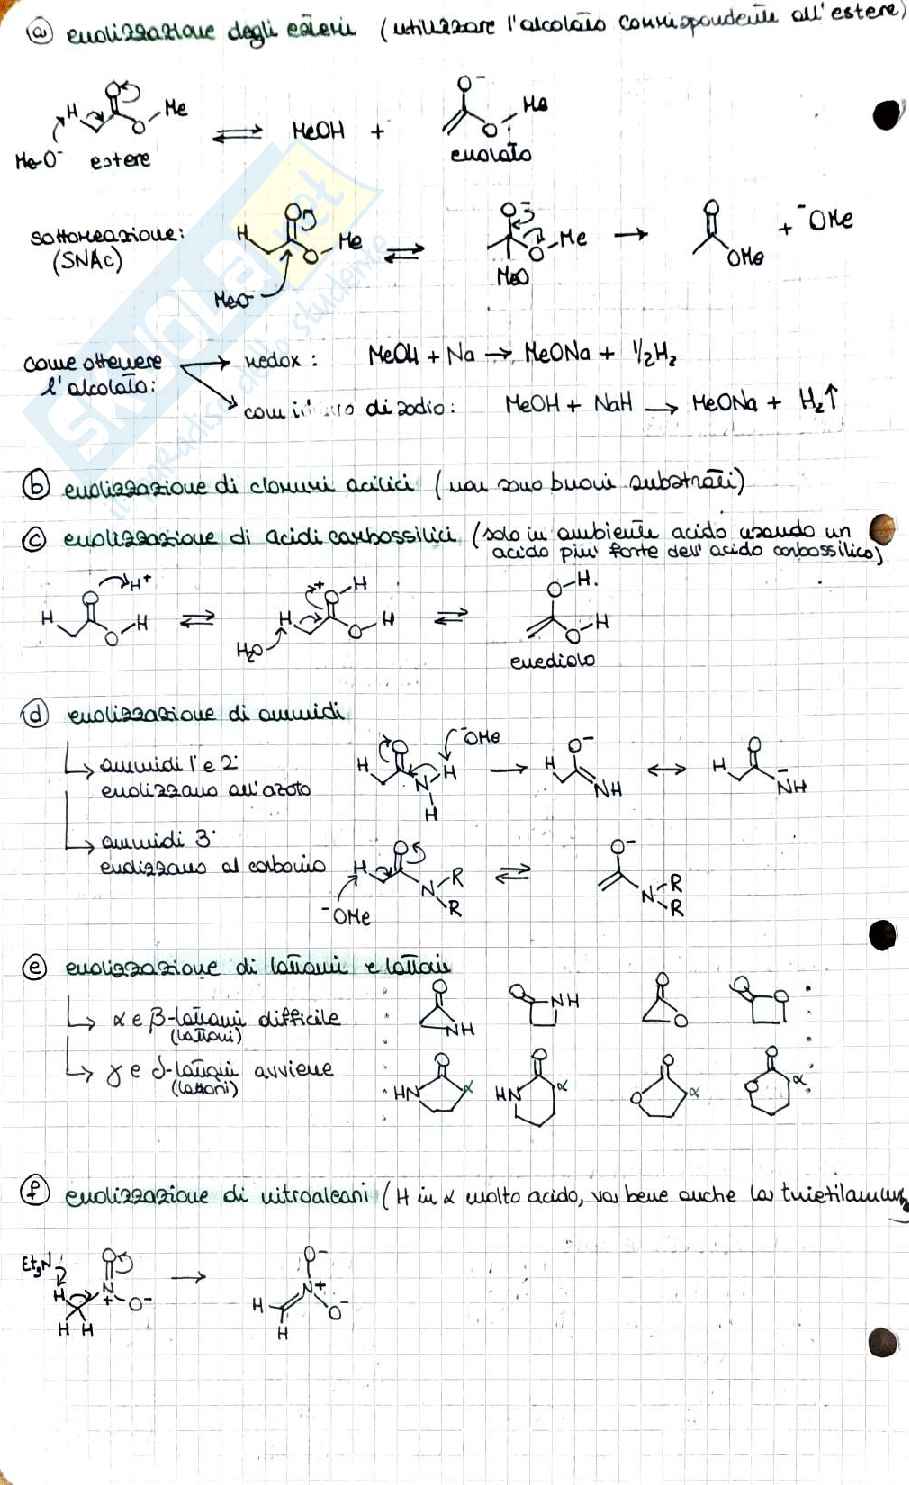 ⓐ enolizzazione degli esteri (utilizzare l'alcolato corrispondente all'estere)
H O O Me
MeO⁻ estere ⇌ MeOH + O⁻ O Me enolato
sottoreazione:
(SNAc)
H O O Me MeO⁻ ⇌ O⁻ O Me MeO → O OMe + ⁻OMe
come ottenere
l'alcolato:
→ redox: MeOH + Na → MeONa + ½H₂
→ con di sodio: MeOH + NaH → MeONa + H₂↑
ⓑ enolizzazione di cloruri acilici (non sono buoni substrati)
ⓒ enolizzazione di acidi carbossilici (solo in ambiente acido usando un
acido piu' forte dell'acido carbossilico)
H O O H H⁺ ⇌ H₂O H O⁺ H O H ⇌ O H O H
enediolo
ⓓ enolizzazione di ammidi
↳ ammidi 1° e 2°
enolizzano all'azoto
H O N H H ⁻OMe → H O⁻ NH ↔ H O NH⁻
↳ ammidi 3°
enolizzano al carbonio
H O N R R ⁻OMe ⇌ O⁻ N R R
ⓔ enolizzazione di lattami e lattoni
↳ α e β-lattami difficile : O NH O NH O O O O
(lattoni)
↳ γ e δ-lattami avviene : HN O α HN O α O O α O O α
(lattoni)
ⓕ enolizzazione di nitroalcani (H in α molto acido, va bene anche la trietilammina
Et₃N H H H O N⁺ O⁻ → H H O⁻ N⁺ O⁻
skuola.net
il paradiso dello studente